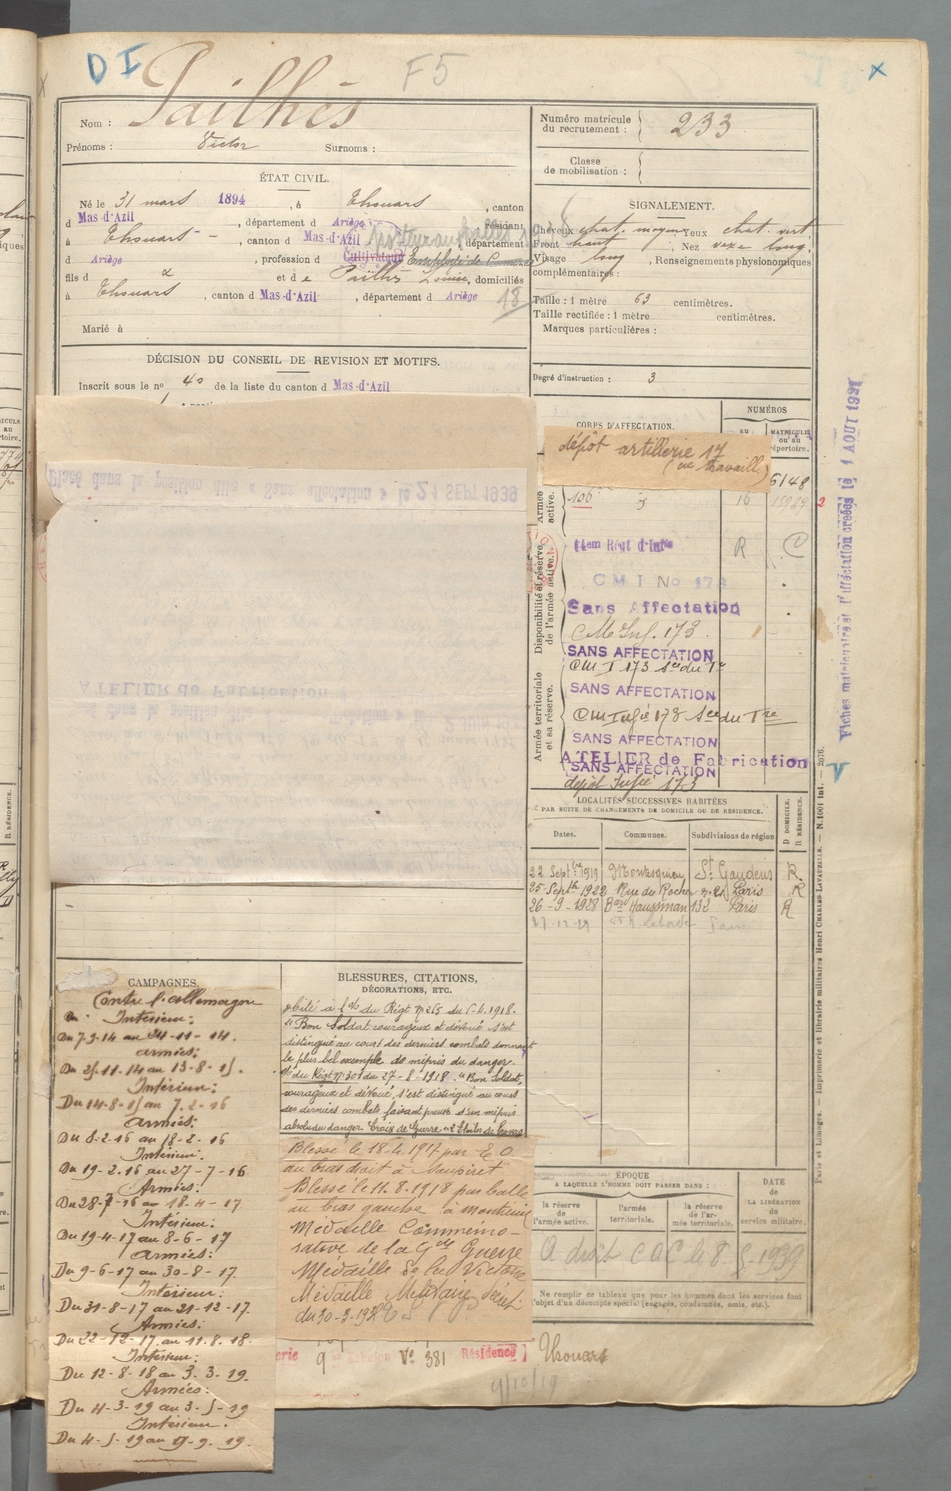 D I
F5
Nom : Pailhès
Prénoms : Victor Surnoms :
ÉTAT CIVIL.
Né le 31 mars 1894, à Thouars, canton
d Mas-d'Azil, département d Ariège, résidant
à Thouars, canton d Mas-d'Azil, département
d Ariège, profession d Cultivateur
fils d x et de Pailhès Louise, domiciliés
à Thouars, canton d Mas-d'Azil, département d Ariège
18
Marié à
DÉCISION DU CONSEIL DE REVISION ET MOTIFS.
Inscrit sous le no 40 de la liste du canton d Mas-d'Azil
Numéro matricule du recrutement : 233
Classe de mobilisation :
SIGNALEMENT.
Cheveux chat. moyen Yeux chat. vert
Front haut, Nez long.
Visage long, Renseignements physionomiques
complémentaires :
Taille : 1 mètre 63 centimètres.
Taille rectifiée : 1 mètre centimètres.
Marques particulières :
Degré d'instruction : 3
CORPS D'AFFECTATION.
NUMÉROS
MATRICULE
ou au
répertoire.
dépôt artillerie 17
6148
Armée active.
106
16
Disponibilité et réserve de l'armée active.
R C
C M I No 173
Sans Affectation
C M Inf. 173
SANS AFFECTATION
SANS AFFECTATION
Armée territoriale et sa réserve.
SANS AFFECTATION
ATELIER de Fabrication
SANS AFFECTATION
dépôt Infie 173
Placé dans la position dite « Sans affectation » le 21 SEPT 1939
ATELIER de Fabrication
LOCALITÉS SUCCESSIVES HABITÉES
PAR SUITE DE CHANGEMENTS DE DOMICILE OU DE RÉSIDENCE.
Dates. Communes. Subdivisions de région
D DOMICILE.
R RÉSIDENCE.
22 Septbre 1919 Montesquieu St Gaudens R.
25 Septb 1922 Rue du Rocher Paris R
26-9-1928 Bard Haussman 132 Paris R
CAMPAGNES.
Contre l'allemagne
Intérieur:
Du 7-9-14 au 24-11-14.
armées:
Du 25-11-14 au 13-8-15.
Intérieur:
Du 14-8-15 au 7-2-16
Armées:
Du 8-2-16 au 18-2-16
Intérieur:
Du 19-2-16 au 27-7-16
Armées:
Du 28-7-16 au 18-4-17
Intérieur:
Du 19-4-17 au 8-6-17
armées:
Du 9-6-17 au 30-8-17.
Intérieur:
Du 31-8-17 au 21-12-17.
Armées:
Du 22-12-17 au 11.8.18.
Intérieur:
Du 12-8-18 au 3.3-19.
Armées:
Du 4-3-19 au 3-5-19
Intérieur.
Du 4-5-19 au 9-9-19.
BLESSURES, CITATIONS,
DÉCORATIONS, ETC.
Cité à l'do du Régt No 265 du 6.4.1918.
"Bon Soldat courageux et dévoué s'est
distingué au court des derniers combats donnant
le plus bel exemple de mépris du danger.
du Régt No 301 du 27-8-1918. "Bon Soldat,
courageux et dévoué, s'est distingué au cours
des derniers combats faisant preuve d'un mépris
absolu du danger. Croix de Guerre Etoiles de bronze
Blessé le 18.4.1917 par E.O.
au bras droit à
Blessé le 11.8.1918 par balle
au bras gauche à
Médaille Commémo-
rative de la Gde Guerre
Médaille de la Victoire
Médaille Militaire décret
du 30-3-19
ÉPOQUE
A LAQUELLE L'HOMME DOIT PASSER DANS :
la réserve de l'armée active.
l'armée territoriale.
la réserve de l'armée territoriale.
DATE
de
LA LIBÉRATION
du
service militaire.
A droit C a C le 8 1939
Ne remplir ce tableau que pour les hommes dont les services font
l'objet d'un décompte spécial (engagés, condamnés, omis, etc.).
9 Vo 381 Résidence Thouars
4/10/19
Fiches matriculaire et d'affectation créées le 1 AOUT 1921
Paris et Limoges. — Imprimerie et librairie militaires Henri CHARLES-LAVAUZELLE. — N. 1001 int. — 2076.